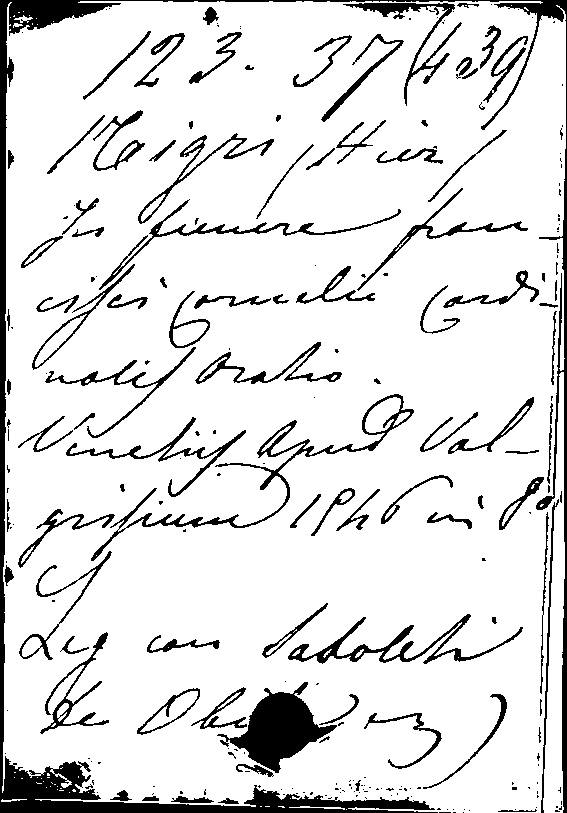 123. 37 (439)
Nigri (Hier)
In funere fran-
cisci Cornelii Cardi-
nalis Oratio.
Venetiis Apud Val-
grisium 1546 in 8º
Leg con Sadoleti
de